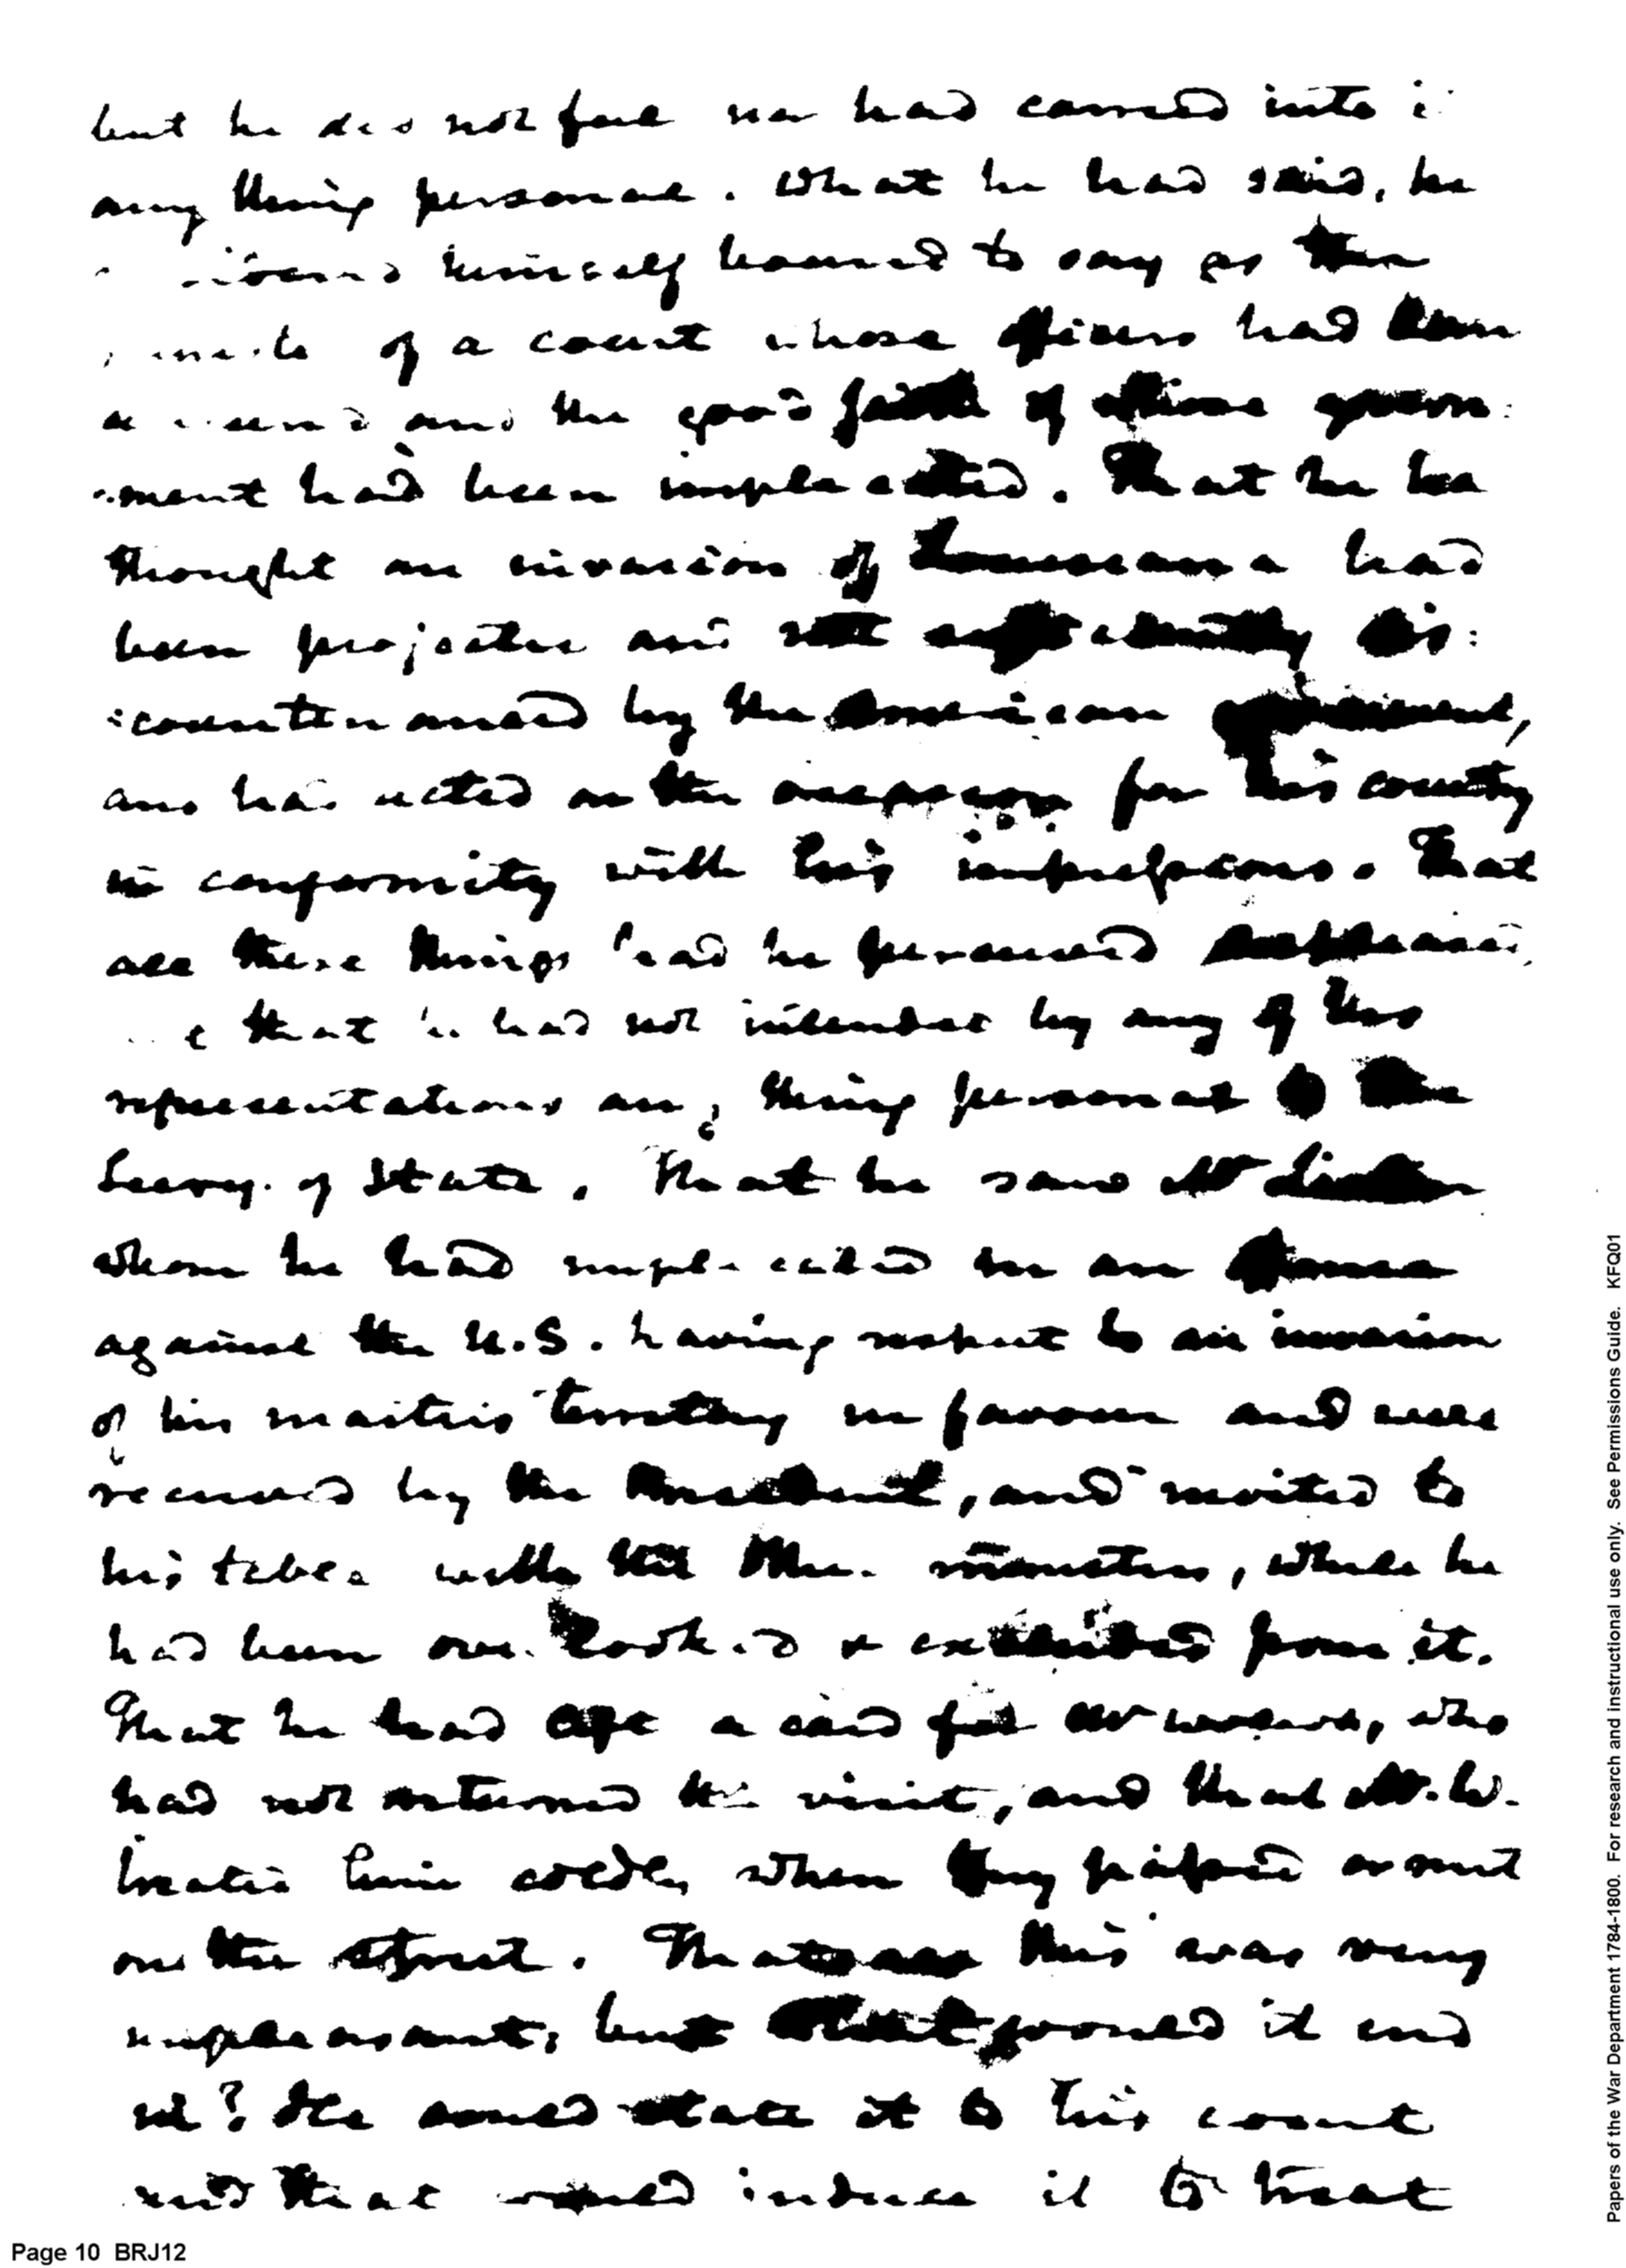 but he did not feel he had carried into i
any thing personal. What he had said, he
himself bound to say as the
of a court whose officers had been
and the good faith of whose govern:
:ment had been implicated. That he
thought an invasion of Louisiana had
been projected and not sufficiently dis:
:countenanced by the American government,
and had acted on the occasion for his country
in conformity with his impressions. That
all these things had he perceived
that he had not intended by any of his
representations any thing personal to the
Secry. of State. That he saw Mr
whom he had implicated in an offence
against the U.S. having respect to an invasion
of his masters territory in favour and well
received by the President, and invited to
his table with the Mr. ministers, while he
had been overlooked & excluded from it.
That he had left a card for Mr , who
had not returned the visit, and that Mr. W.
treated him coldly when they passed or met
on the street. That all this was very
unpleasant, but what good would it end
in? He would state it to his court
and that would induce it to treat
Page 10 BRJ12
Papers of the War Department 1784-1800. For research and instructional use only. See Permissions Guide. KFQ01